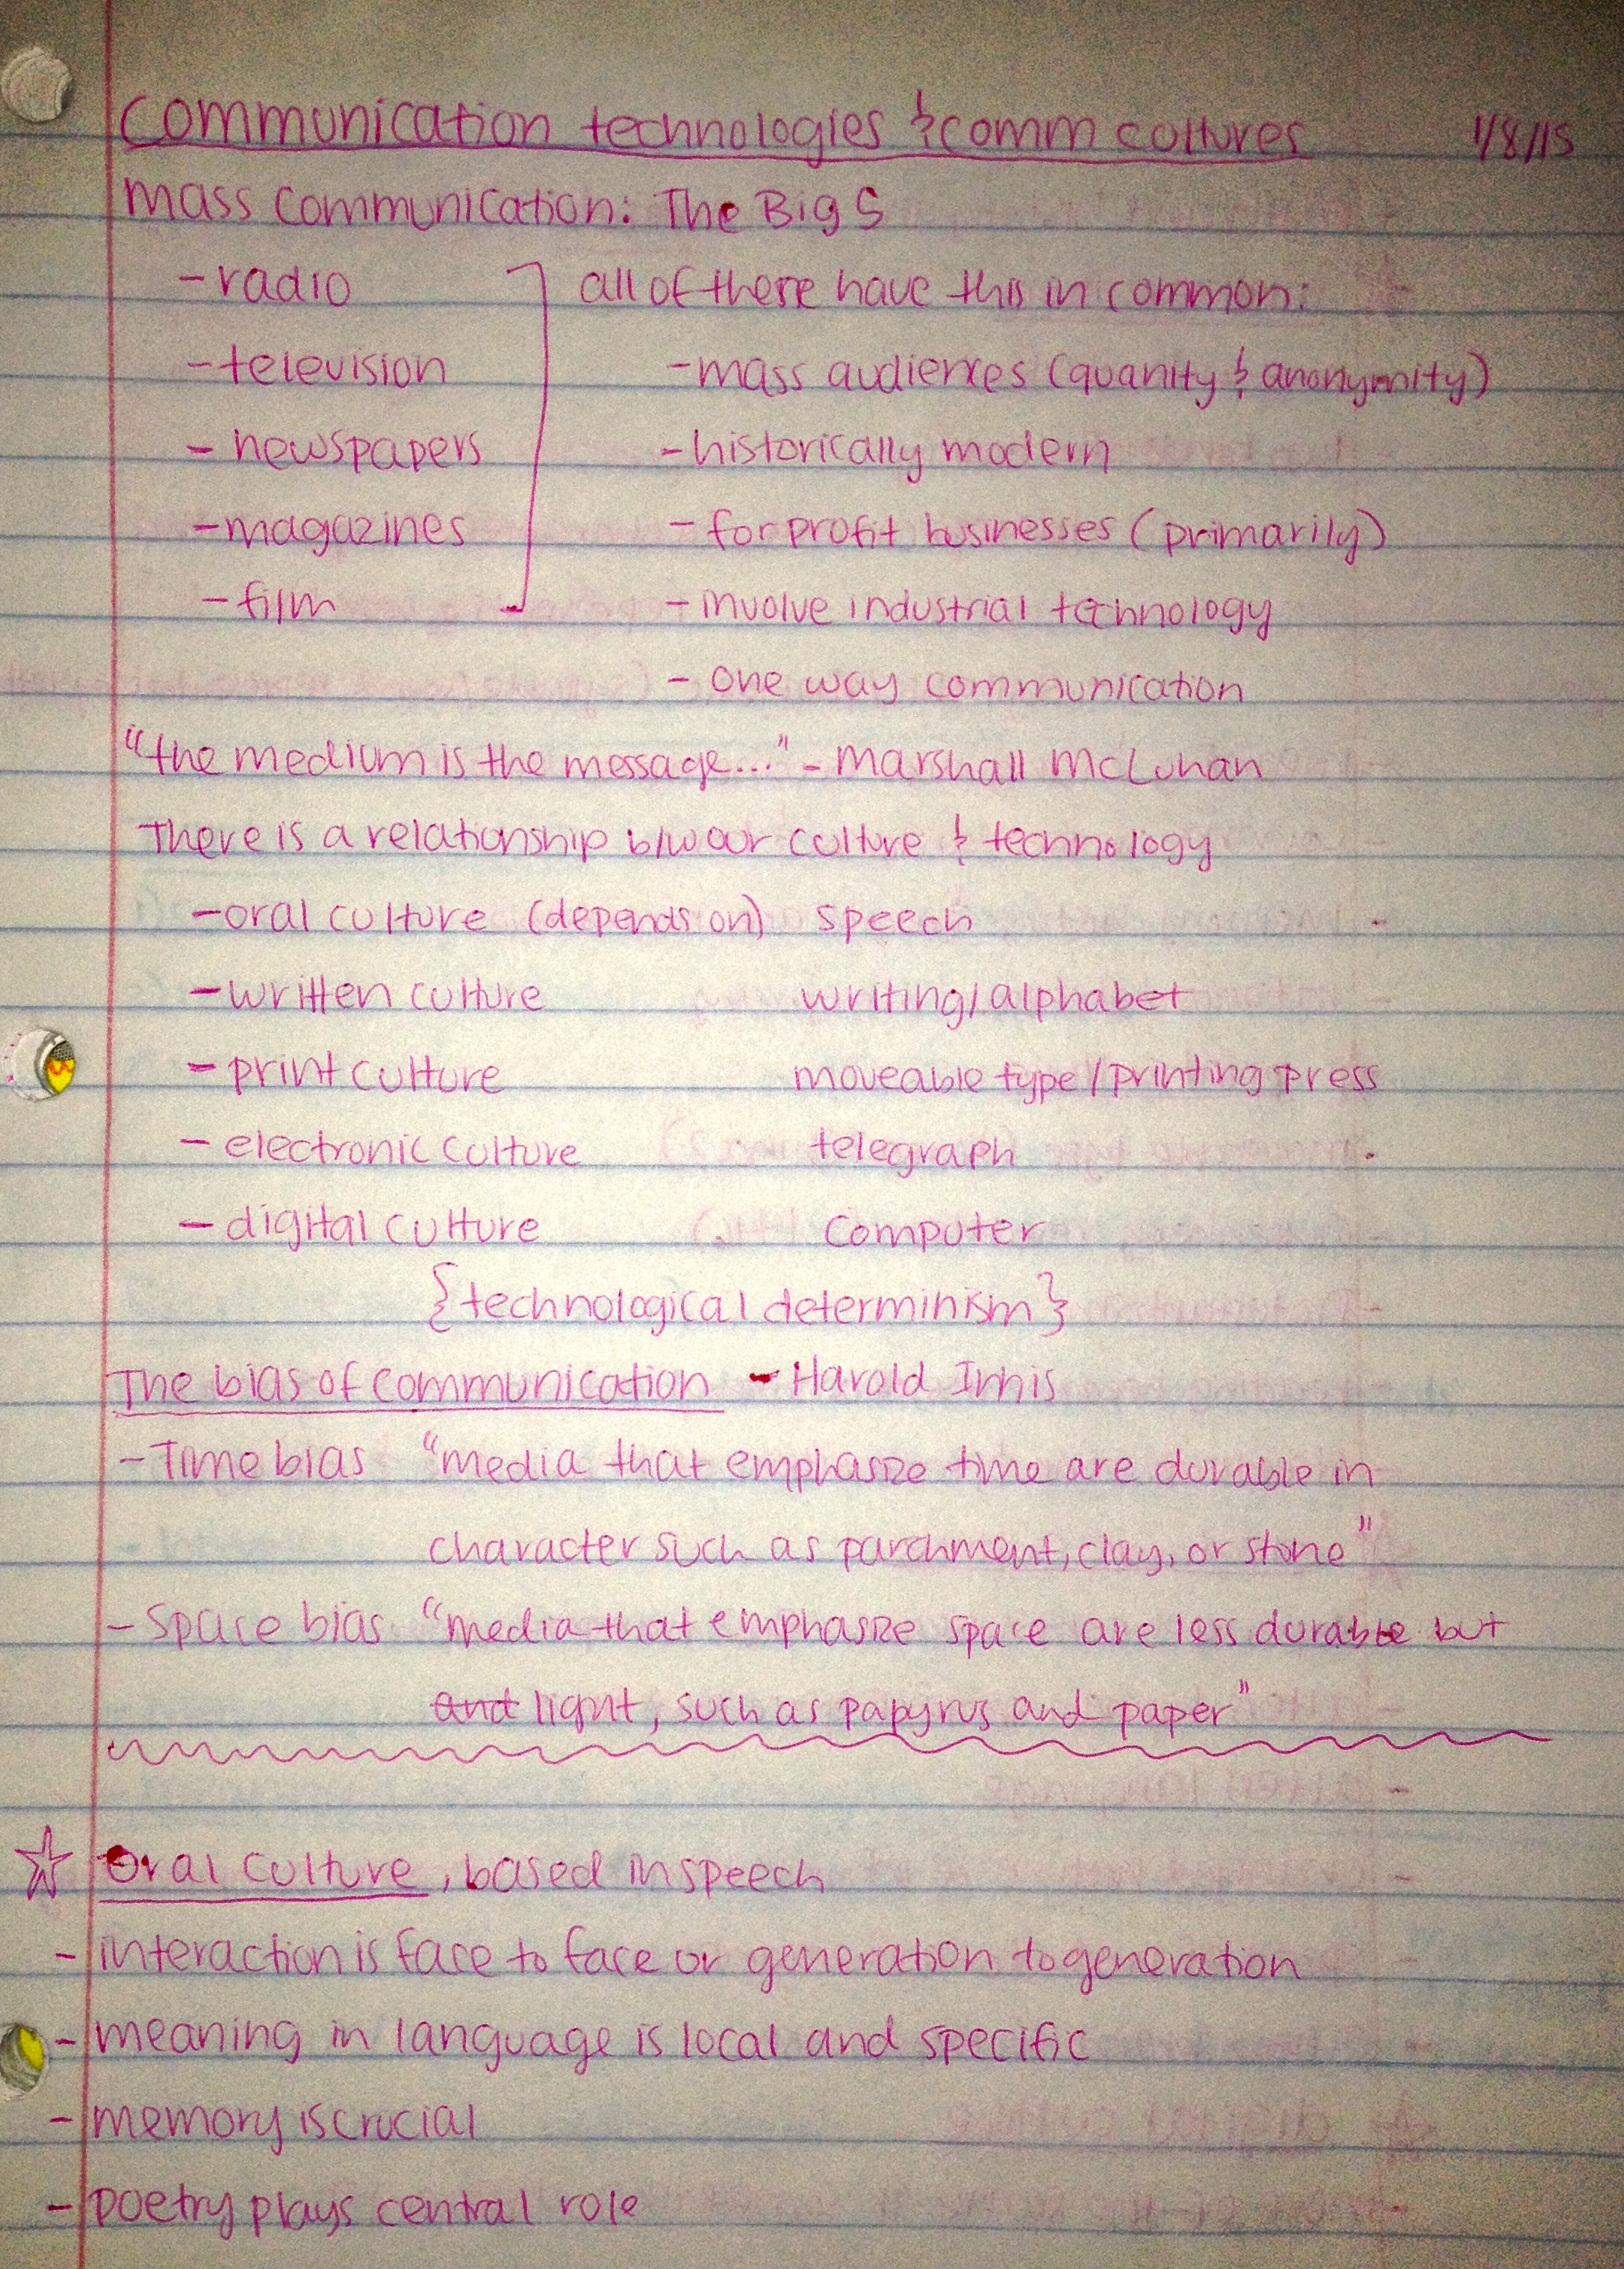 Communication technologies & comm cultures 1/8/15
Mass Communication: The Big 5
- radio all of these have this in common:
- television - mass audiences (quanity & anonymity)
- newspapers - historically modern
- magazines - for profit businesses (primarily)
- film - involve industrial technology
- one way communication
"the medium is the message..." - Marshall McLuhan
There is a relationship b/w our culture & technology
- oral culture (depends on) speech
- written culture writing/alphabet
- print culture moveable type/printing press
- electronic culture telegraph
- digital culture computer
{technological determinism}
The bias of communication - Harold Innis
- Time bias "media that emphasize time are durable in
character such as parchment, clay, or stone"
- Space bias "media that emphasize space are less durable but
and light, such as papyrus and paper"
☆ Oral culture, based in speech
- interaction is face to face or generation to generation
- meaning in language is local and specific
- memory is crucial
- poetry plays central role